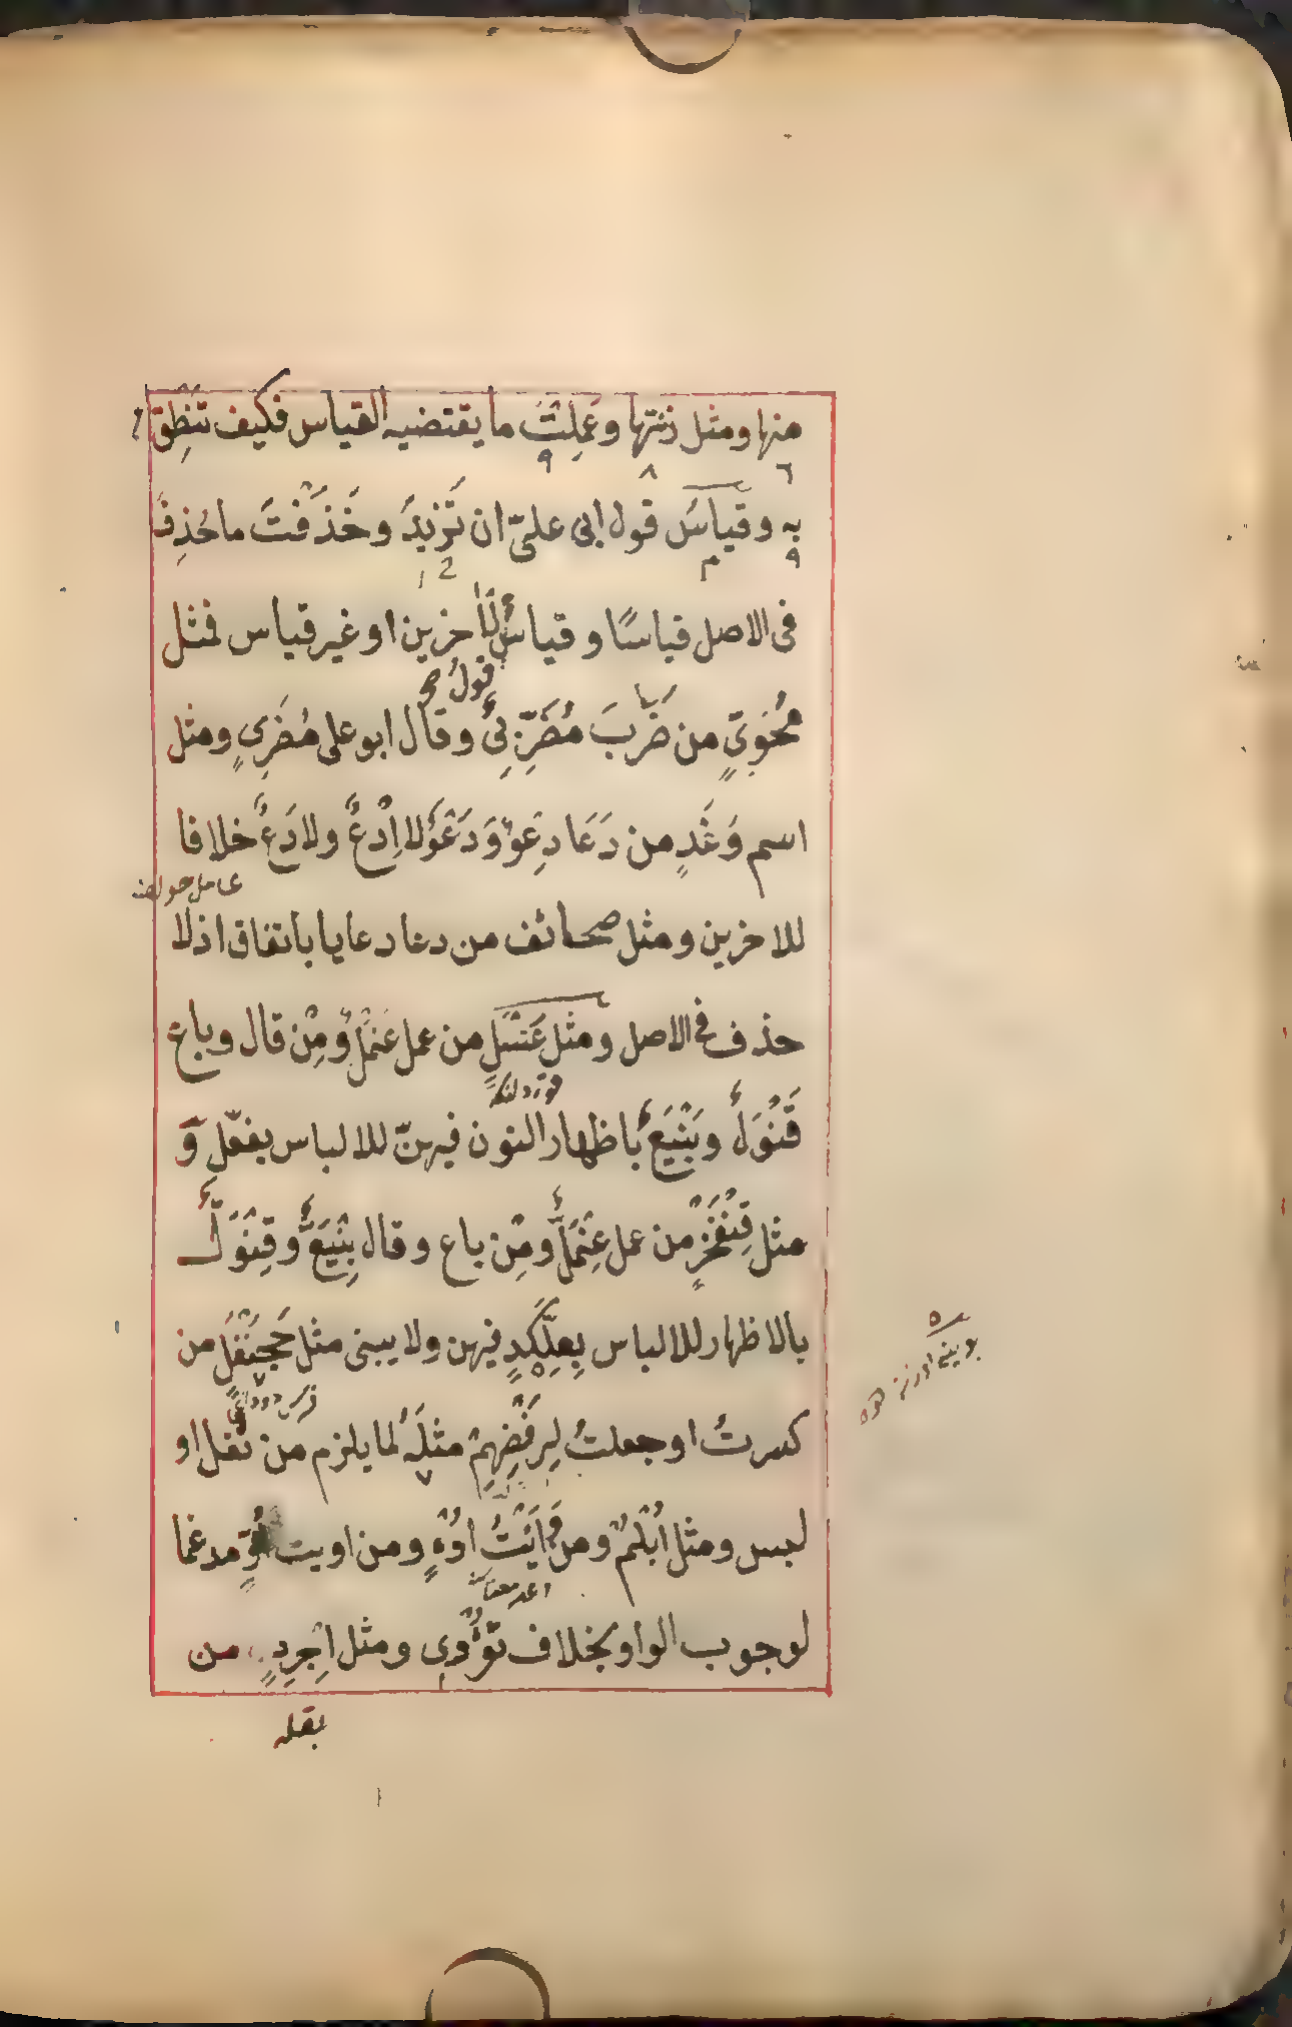 منها ومثل زنتها وعَمِلتَ ما يقتضيه القياس فكيف تَنطِق
به وقياسُ قول ابى علىّ ان تَزيدَ وحَذَفْتَ ما حُذِفَ
فى الاصل قياسًا وقياسُ الآخرين او غير قياس فمثل
قولُ صح
مُحَوِىٍّ من ضَرَبَ مُضَرِّبِىٌّ وقال ابو على مُضَرِىٍ ومثل
اسم وَغَدٍ من دَعَا دِعْوٌ وَدَعْوٌ لا اِدْعٌ ولا دَعٌ خلافا
للاخرين ومثل صحائف من دعا دعايا باتفاق اذ لا
حذف فى الاصل ومثل عَنْسَلٍ من عمل عَنْمَلٌ ومِنْ قال وباع
قَنْوَلٌ وبَنْيَعٌ باظهار النون فيهنّ للالباس بفعّل وَ
مثل قِنْفَخْرٍ من عمل عِنْمَلٌّ ومِنْ باع وقال بِنْيَعٌّ وقِنْوَلٌّ
بالاظهار للالباس بِعِلَّكْدٍ فيهن ولا يبنى مثل جَحَنْفَلٍ من
كسرتُ او جعلتُ لِرَفْضِهِمْ مثلَهُ لما يلزم من ثقل او
لبس ومثل اُبْلُمٌ ومن وَاَيْتُ اُوْءٍ ومن اويت اُوٍّ مدغما
لوجوب الواو بخلاف تُؤْوِى ومثل اِجْرِدٍ من
بقله